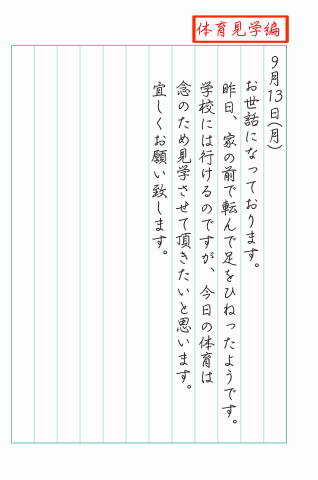 体育見学編
9月13日(月)
お世話になっております。
昨日、家の前で転んで足をひねったようです。
学校には行けるのですが、今日の体育は
念のため見学させて頂きたいと思います。
宜しくお願い致します。